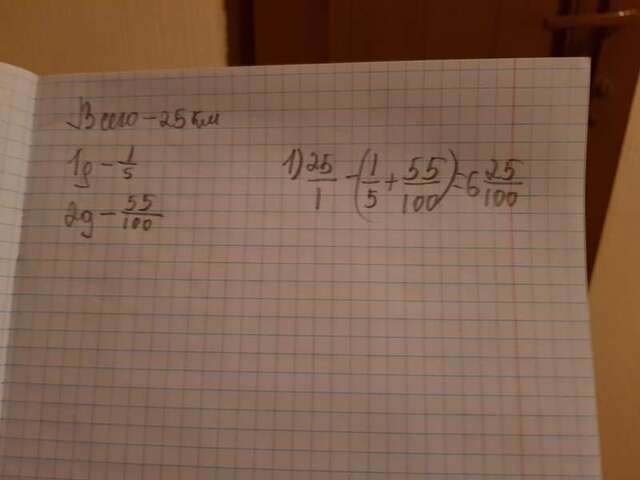 Всего - 25 км
1д - 1/5
2д - 55/100
1) 25/1 - (1/5 + 55/100) = 6 25/100